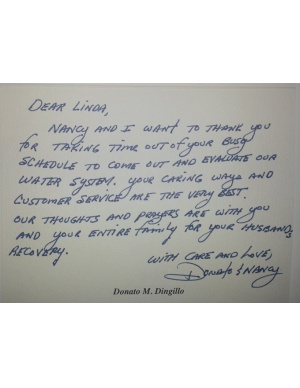 DEAR LINDA,
NANCY AND I WANT TO THANK YOU
FOR TAKING TIME OUT OF YOUR BUSY
SCHEDULE TO COME OUT AND EVALUATE OUR
WATER SYSTEM. YOUR CARING WAYS AND
CUSTOMER SERVICE ARE THE VERY BEST.
OUR THOUGHTS AND PRAYERS ARE WITH YOU
AND YOUR ENTIRE FAMILY FOR YOUR HUSBANDS
RECOVERY.
WITH CARE AND LOVE,
Donato & NANCY
Donato M. Dingillo